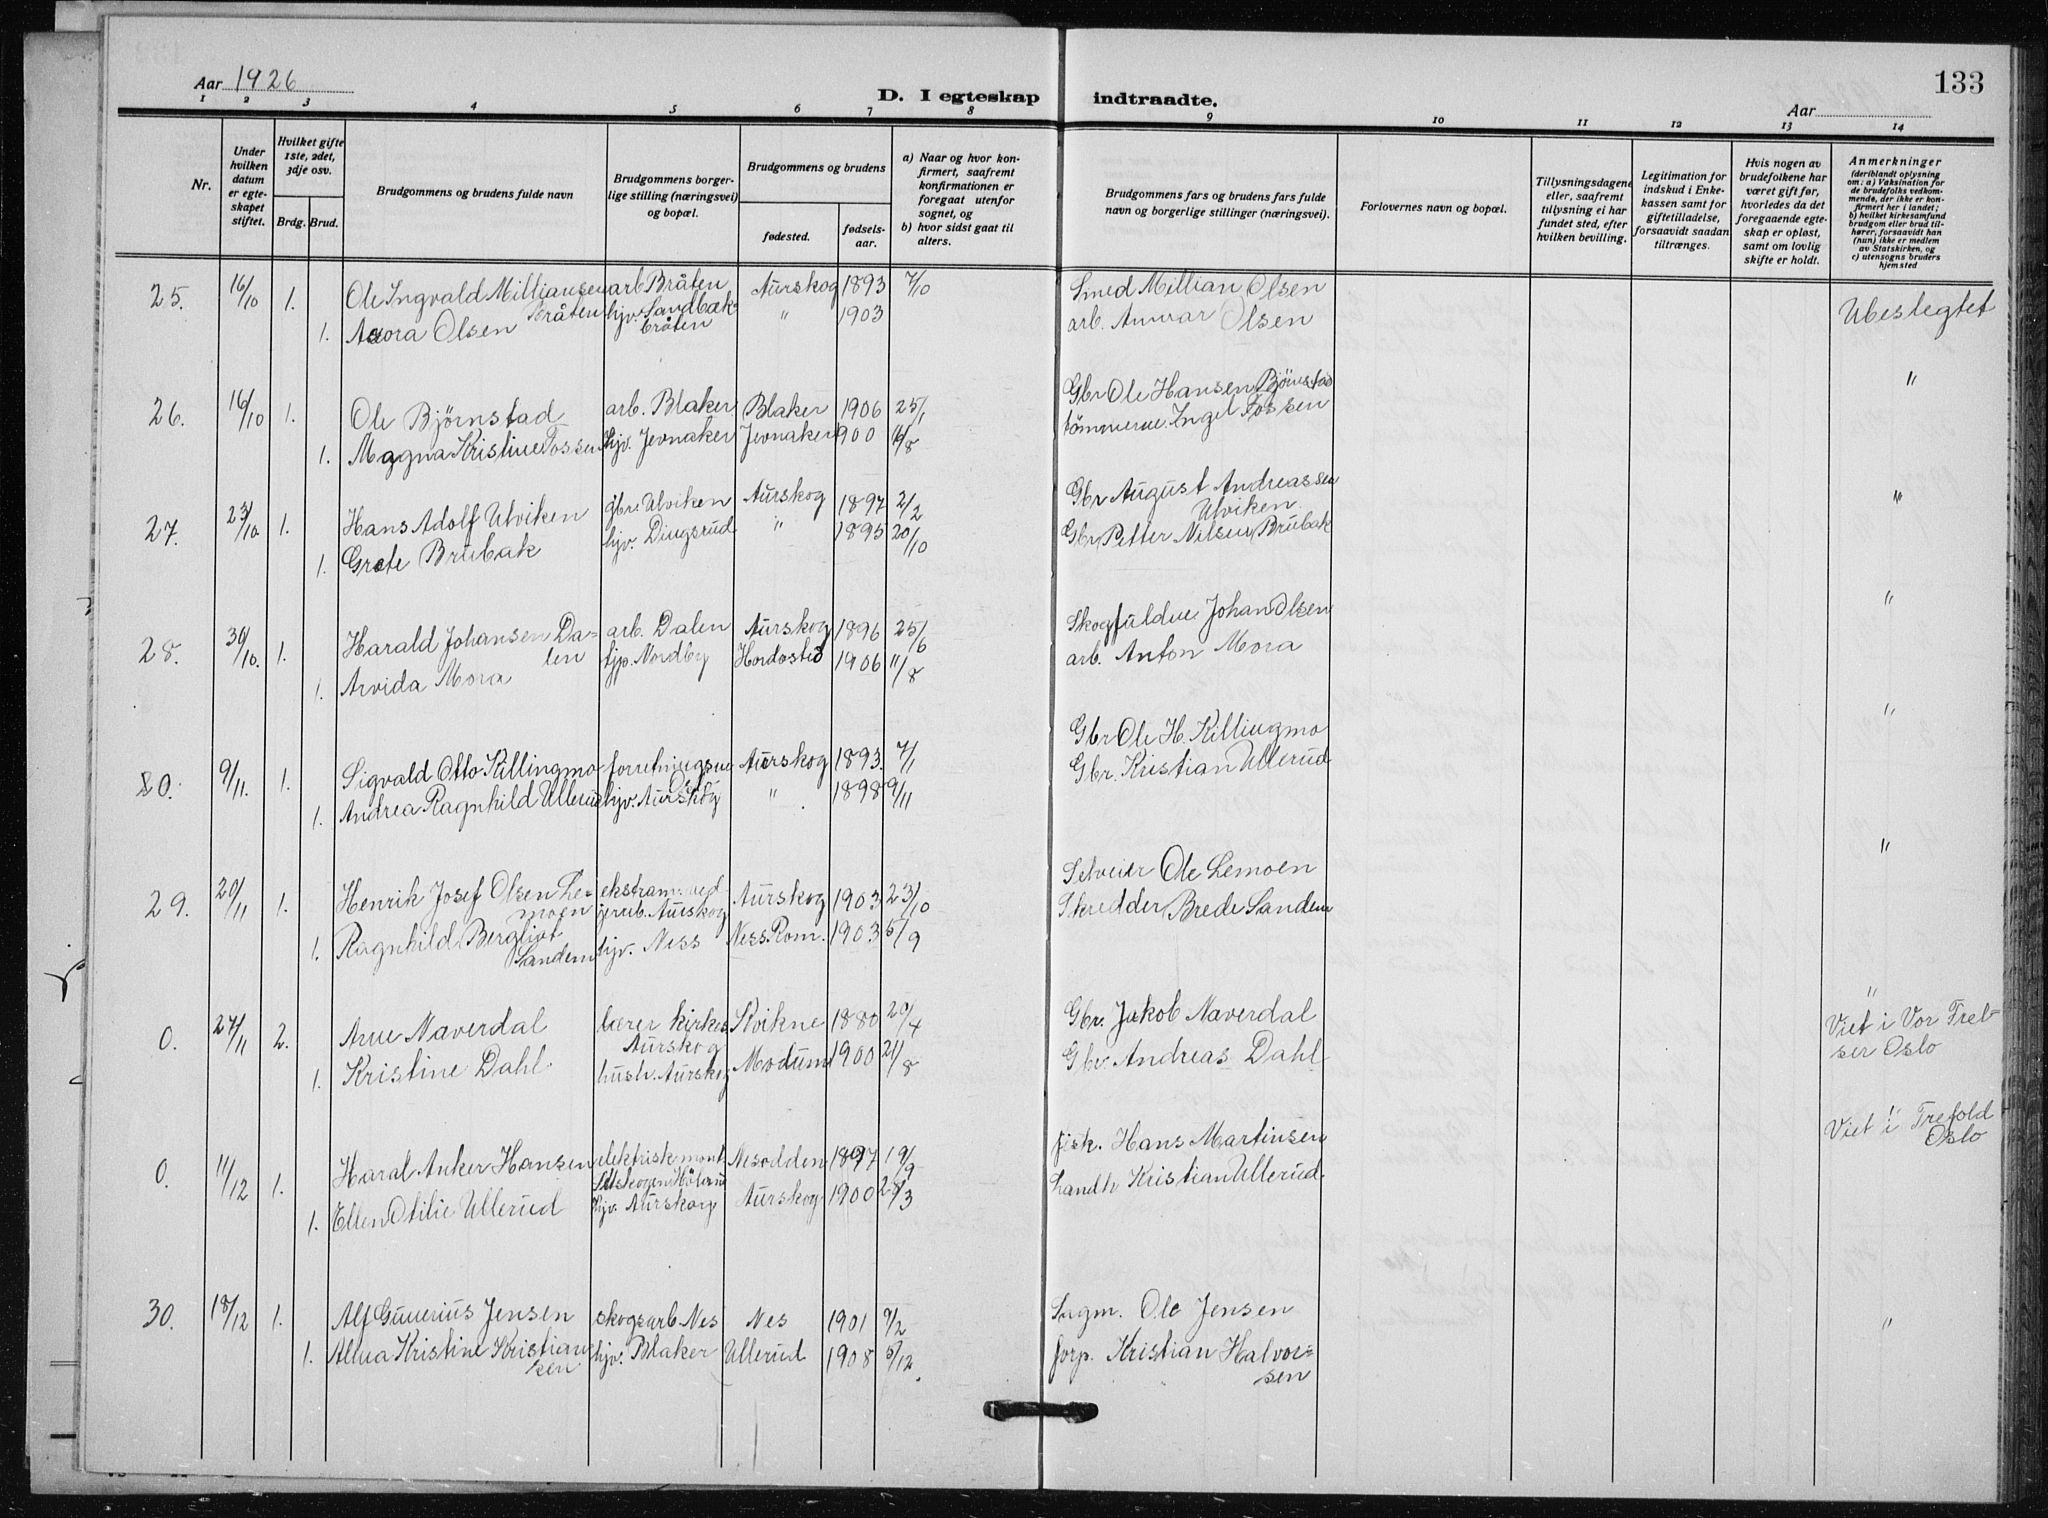 133
Aar 1926
D. I egteskap indtraadte.
Aar
1 2 3 4 5 6 7 8 9 10 11 12 13 14
Nr.
Under hvilken datum er egteskapet stiftet.
Hvilket gifte 1ste, 2det, 3dje osv.
Brdg. Brud.
Brudgommens og brudens fulde navn
Brudgommens borgerlige stilling (næringsvei) og bopæl.
Brudgommens og brudens
fødested.
fødselsaar.
a) Naar og hvor konfirmert, saafremt konfirmationen er foregaat utenfor sognet, og
b) hvor sidst gaat til alters.
Brudgommens fars og brudens fars fulde navn og borgerlige stillinger (næringsvei).
Forlovernes navn og bopæl.
Tillysningsdagene eller, saafremt tillysning ei har fundet sted, efter hvilken bevilling.
Legitimation for indskud i Enkekassen samt for giftetilladelse, forsaavidt saadan tiltrænges.
Hvis nogen av brudefolkene har været gift før, hvorledes da det foregaaende egteskap er opløst, samt om lovlig skifte er holdt.
Anmerkninger
(deriblandt oplysning om: a) Vaksination for de brudefolks vedkommende, der ikke er konfirmert her i landet; b) hvilket kirkesamfund brudgom eller brud tilhører, forsaavidt han (hun) ikke er medlem av Statskirken, og c) utensogns bruders hjemsted
25. 16/10 1. Ole Ingvald Milliansen Bråten arb Bråten Aurskog 1893 7/10 Smed Millian Olsen Ubeslegtet
1. Aurora Olsen hjv. Sandbækbråten " 1903 arb. Anvar Olsen
26. 16/10 1. Ole Bjørnstad arb. Blaker Blaker 1906 25/1 Gbr Ole Hansen Bjørnstad "
1. Magna Kristine Fossen hjv. Jevnaker Jevnaker 1900 /8 tømmerm. Ingel Fossen
27. 23/10 1. Hans Adolf Ulviken gbr. Ulviken Aurskog 1897 2/2 Gbr August Andreassen Ulviken "
1. Grete Brubak hjv. Dingsrud " 1895 20/10 Gbr Petter Nilsen Brubak
28. 30/10. 1. Harald Johansen Dalen arb. Dalen Aurskog 1896 25/6 Skogfuldm Johan Olsen "
1. Arvida Mora tjp. Nordby 1906 11/8 arb. Anton Mora
9/11. 1. Sigvald Otto Killingmo forretningsm Aurskog 1893. 7/1 Gbr Ole H. Killingmo "
1. Andrea Ragnhild Ullerud hjv. Aurskog " 1898 9/11 Gbr. Kristian Ullerud
29. 20/11 1. Henrik Josef Olsen Lemoen Aurskog Aurskog 1903 23/10 Selveier Ole Lemoen "
1. Ragnhild Bergliot Sandem hjv. Ness Ness. Rom. 1903 5/9 Skredder Brede Sandem
0. 27/11 2. Arne Naverdal lærer Kirkes Aurskog Kvikne 1880 20/4 Gbr. Jakob Naverdal "
Viet i Vor Frelser Oslo
1. Kristine Dahl. hush. Aurskog Modum 1900 21/8 Gbr. Andreas Dahl
0. 11/12 1. Haral Anker Hansen elektrisk mont. Setskogen Høland Nesodden 1897 19/9 fisk. Hans Martinsen "
Viet i Trefold Oslo
1. Ellen Otilie Ullerud hjv. Aurskog Aurskog 1900 28/3 Landh Kristian Ullerud.
30. 18/12 1. Alf Gunerius Jensen skogsarb. Nes Nes 1901 9/2 Sagm. Ole Jensen "
1. Alma Kristine Kristiansen hjv. Blaker Ullerud 1908 6/12. forp. Kristian Halvorsen